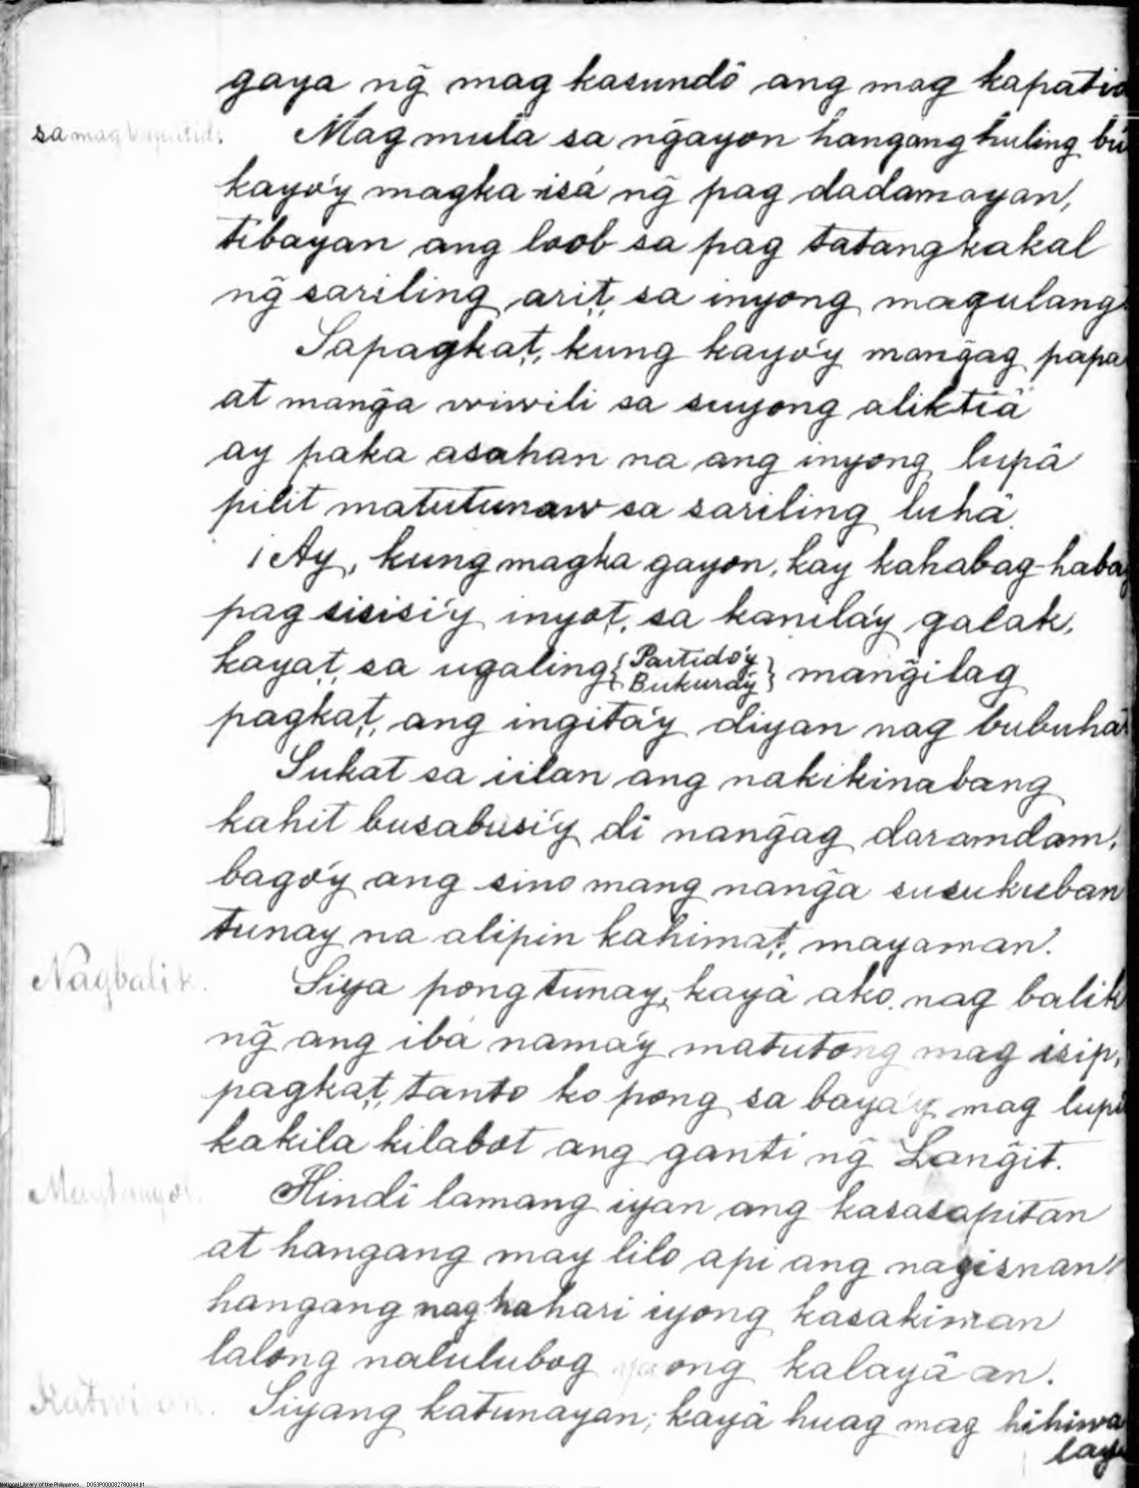 gaya ng̃ mag kasundô ang mag kapatid
sa
Mag mula sa ng̃ayon hangang huling
kayo'y magka-isá ng̃ pag dadamayan,
tibayan ang loob sa pag tatangkakal
ng̃ sariling arit, sa inyong magulang
Sapagkat, kung kayo'y mang̃ag papa
at mang̃a wiwili sa suyong aliktiâ
ay paka asahan na ang inyong lupâ
pilit matutunaw sa sariling luhâ
¡Ay, kung magka gayon, kay kahabag-habag
pag sisisi'y inyot, sa kanila'y galak,
kayat, sa ugaling {Partido'y
Bukurdy} mang̃ilag
pagkat, ang ingita'y diyan nag bubuhat
Sukat sa iilan ang nakikinabang
kahit busabusi'y di nang̃ag daramdam,
bago'y ang sino mang nang̃a susukuban
tunay na alipin kahimat, mayaman.
Nagbalik.
Siya pong tunay, kayâ ako nag balik
ng̃ ang ibá nama'y matutong mag isip,
pagkat, tanto ko pong sa baya'y mag
kakila kilabot ang ganti ng̃ Lang̃it.
Hindi lamang iyan ang kasasapitan
at hangang may lilo api ang nagisnan
hangang naghahari iyong kasakiman
lalong nalulubog yaong kalayâan.
Siyang katunayan; kayâ huag mag hihiwa
lay
National Library of the Philippines.